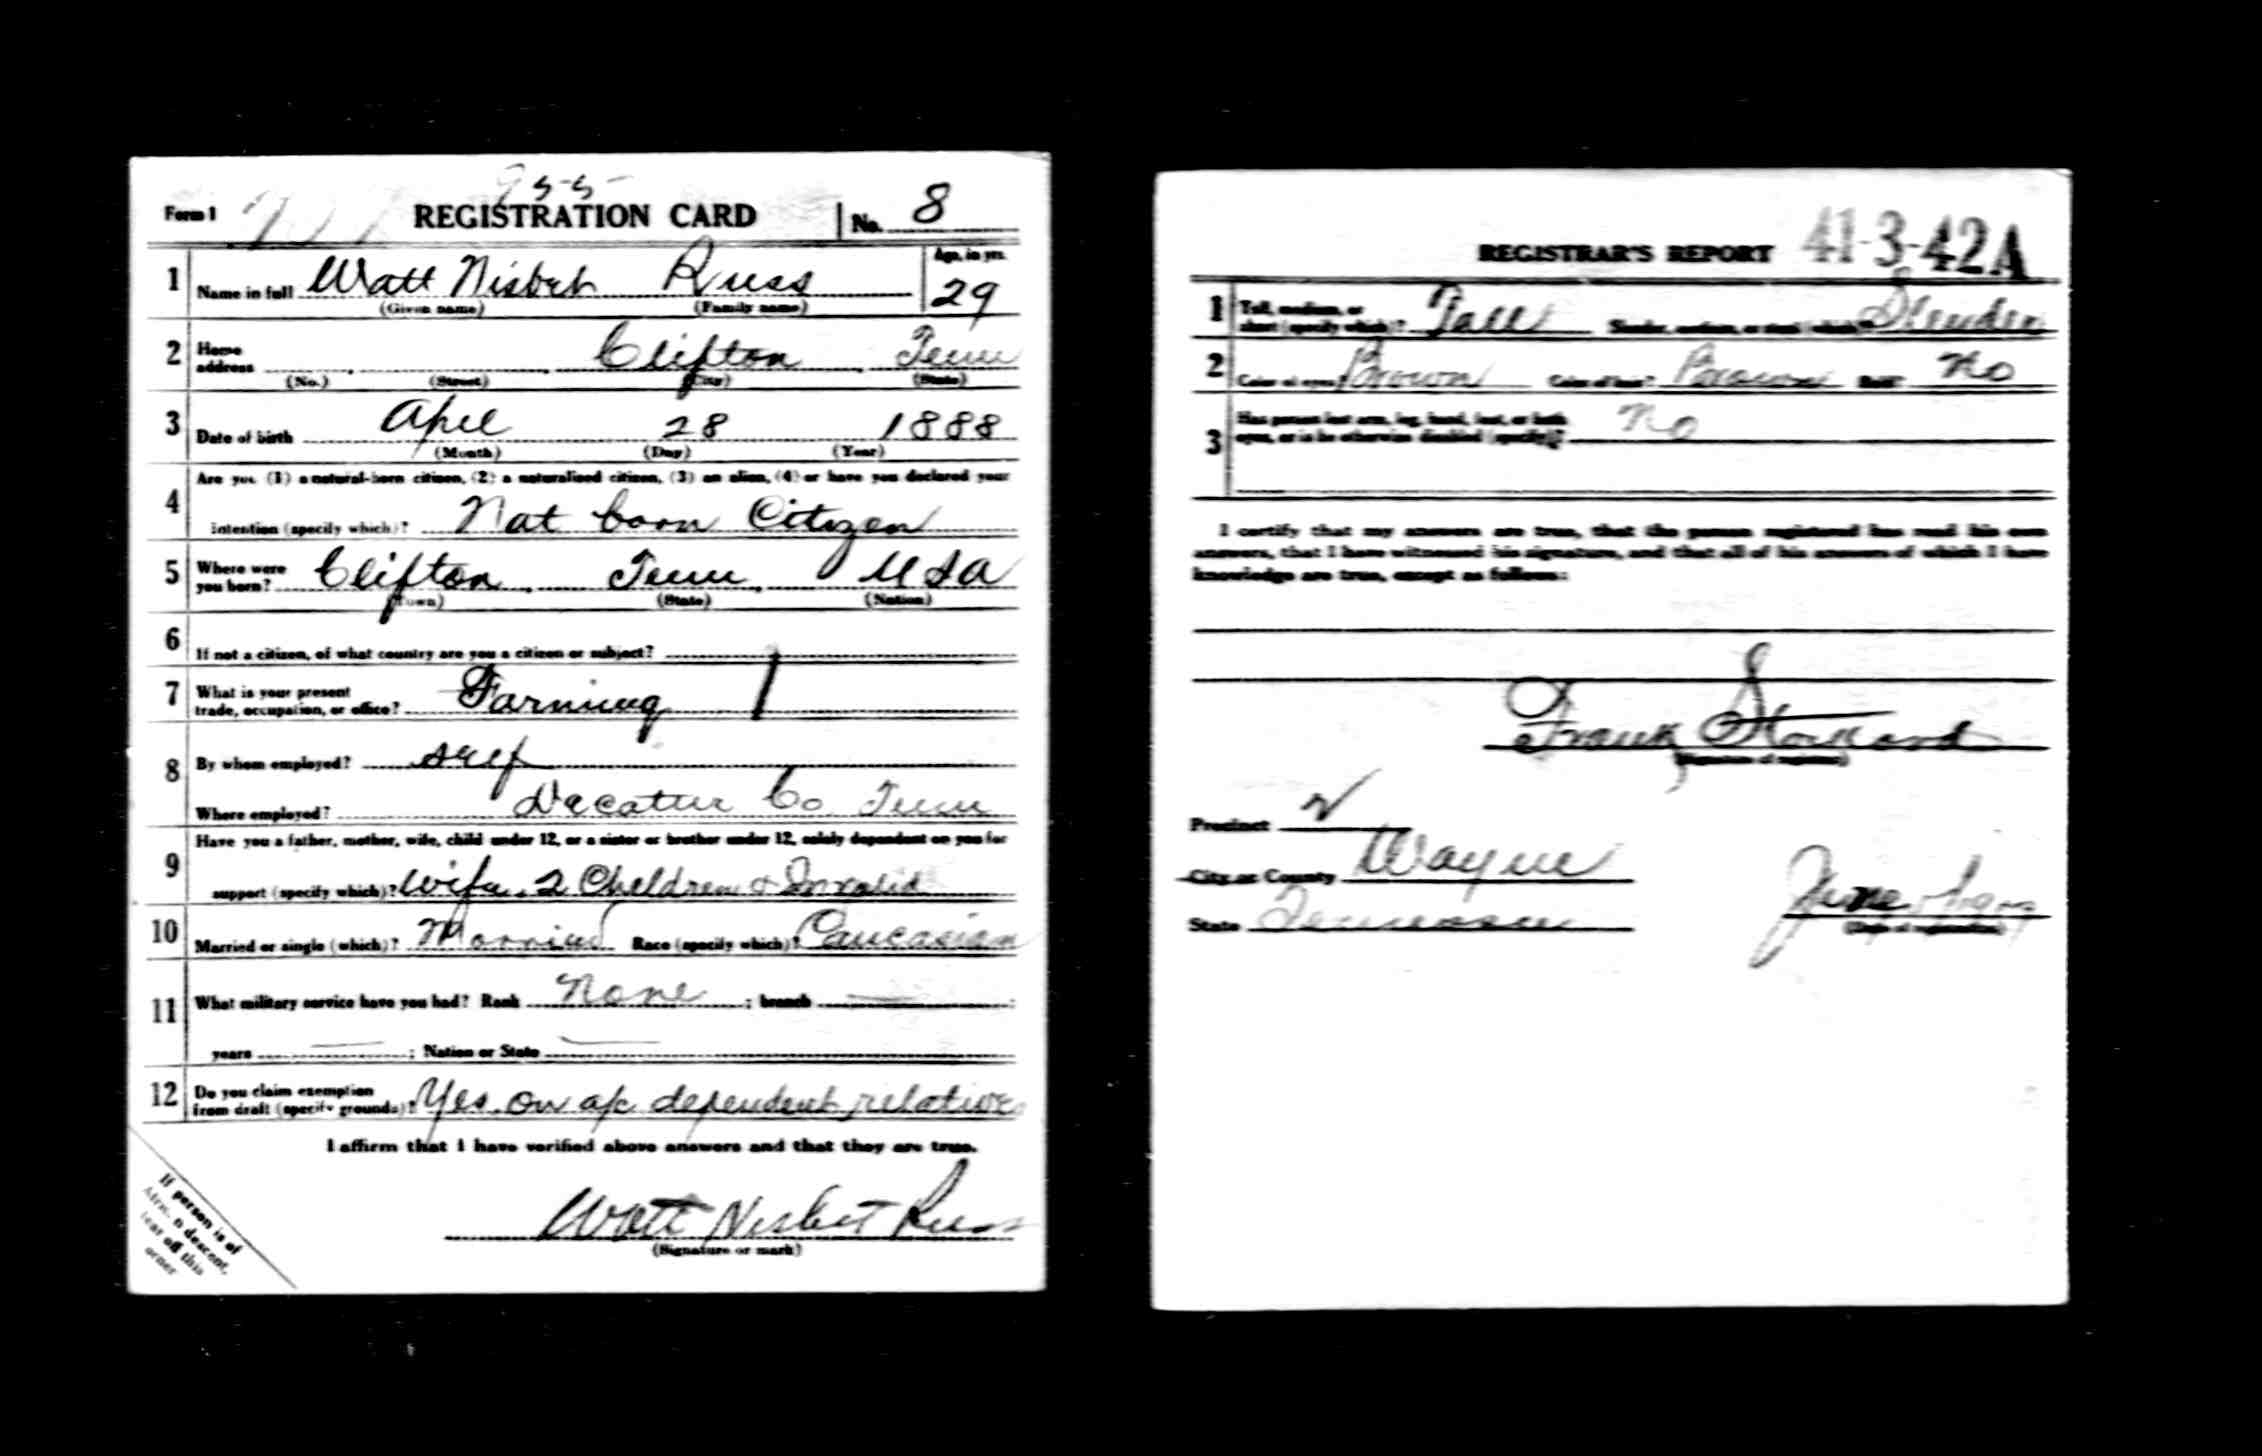 955
Form 1 REGISTRATION CARD No. 8
1 Name in full Watt Nisbet Russ Age, in yrs. 29
(Given name) (Family name)
2 Home address Clifton Tenn
(No.) (Street) (City) (State)
3 Date of birth April 28 1888
(Month) (Day) (Year)
4 Are you (1) a natural-born citizen, (2) a naturalized citizen, (3) an alien, (4) or have you declared your
intention (specify which)? Nat born Citizen
5 Where were you born? Clifton Tenn USA
(Town) (State) (Nation)
6 If not a citizen, of what country are you a citizen or subject?
7 What is your present trade, occupation, or office? Farming
8 By whom employed? self
Where employed? Decatur Co. Tenn
9 Have you a father, mother, wife, child under 12, or a sister or brother under 12, solely dependent on you for
support (specify which)? Wife. 2 Children & Invalid
10 Married or single (which)? Married Race (specify which)? Caucasian
11 What military service have you had? Rank None ; branch — ;
years — ; Nation or State —
12 Do you claim exemption from draft (specify grounds)? Yes. on a/c dependent relatives
I affirm that I have verified above answers and that they are true.
Watt Nisbet Russ
(Signature or mark)
If person is of
descent,
tear off this
corner
REGISTRAR'S REPORT 41-3-42A
1 Tall, medium, or short (specify which)? Tall Slender, medium, or stout (which)? Slender
2 Color of eyes? Brown Color of hair? Brown Bald? No
3 Has person lost arm, leg, hand, foot, or both
eyes, or is he otherwise disabled (specify)? No
I certify that my answers are true, that the person registered has read his own
answers, that I have witnessed his signature, and that all of his answers of which I have
knowledge are true, except as follows:
Frank Stockard
(Signature of registrar)
Precinct 2
City or County Wayne
State Tennessee June
(Date of registration)